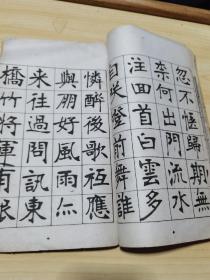 忽不愜歸期無
柰何出門流水
注回首白雲多
自咲登前舞誰
憐醉後歌祗應
與朋好風雨亦
来往過問訊東
橋竹將軍有